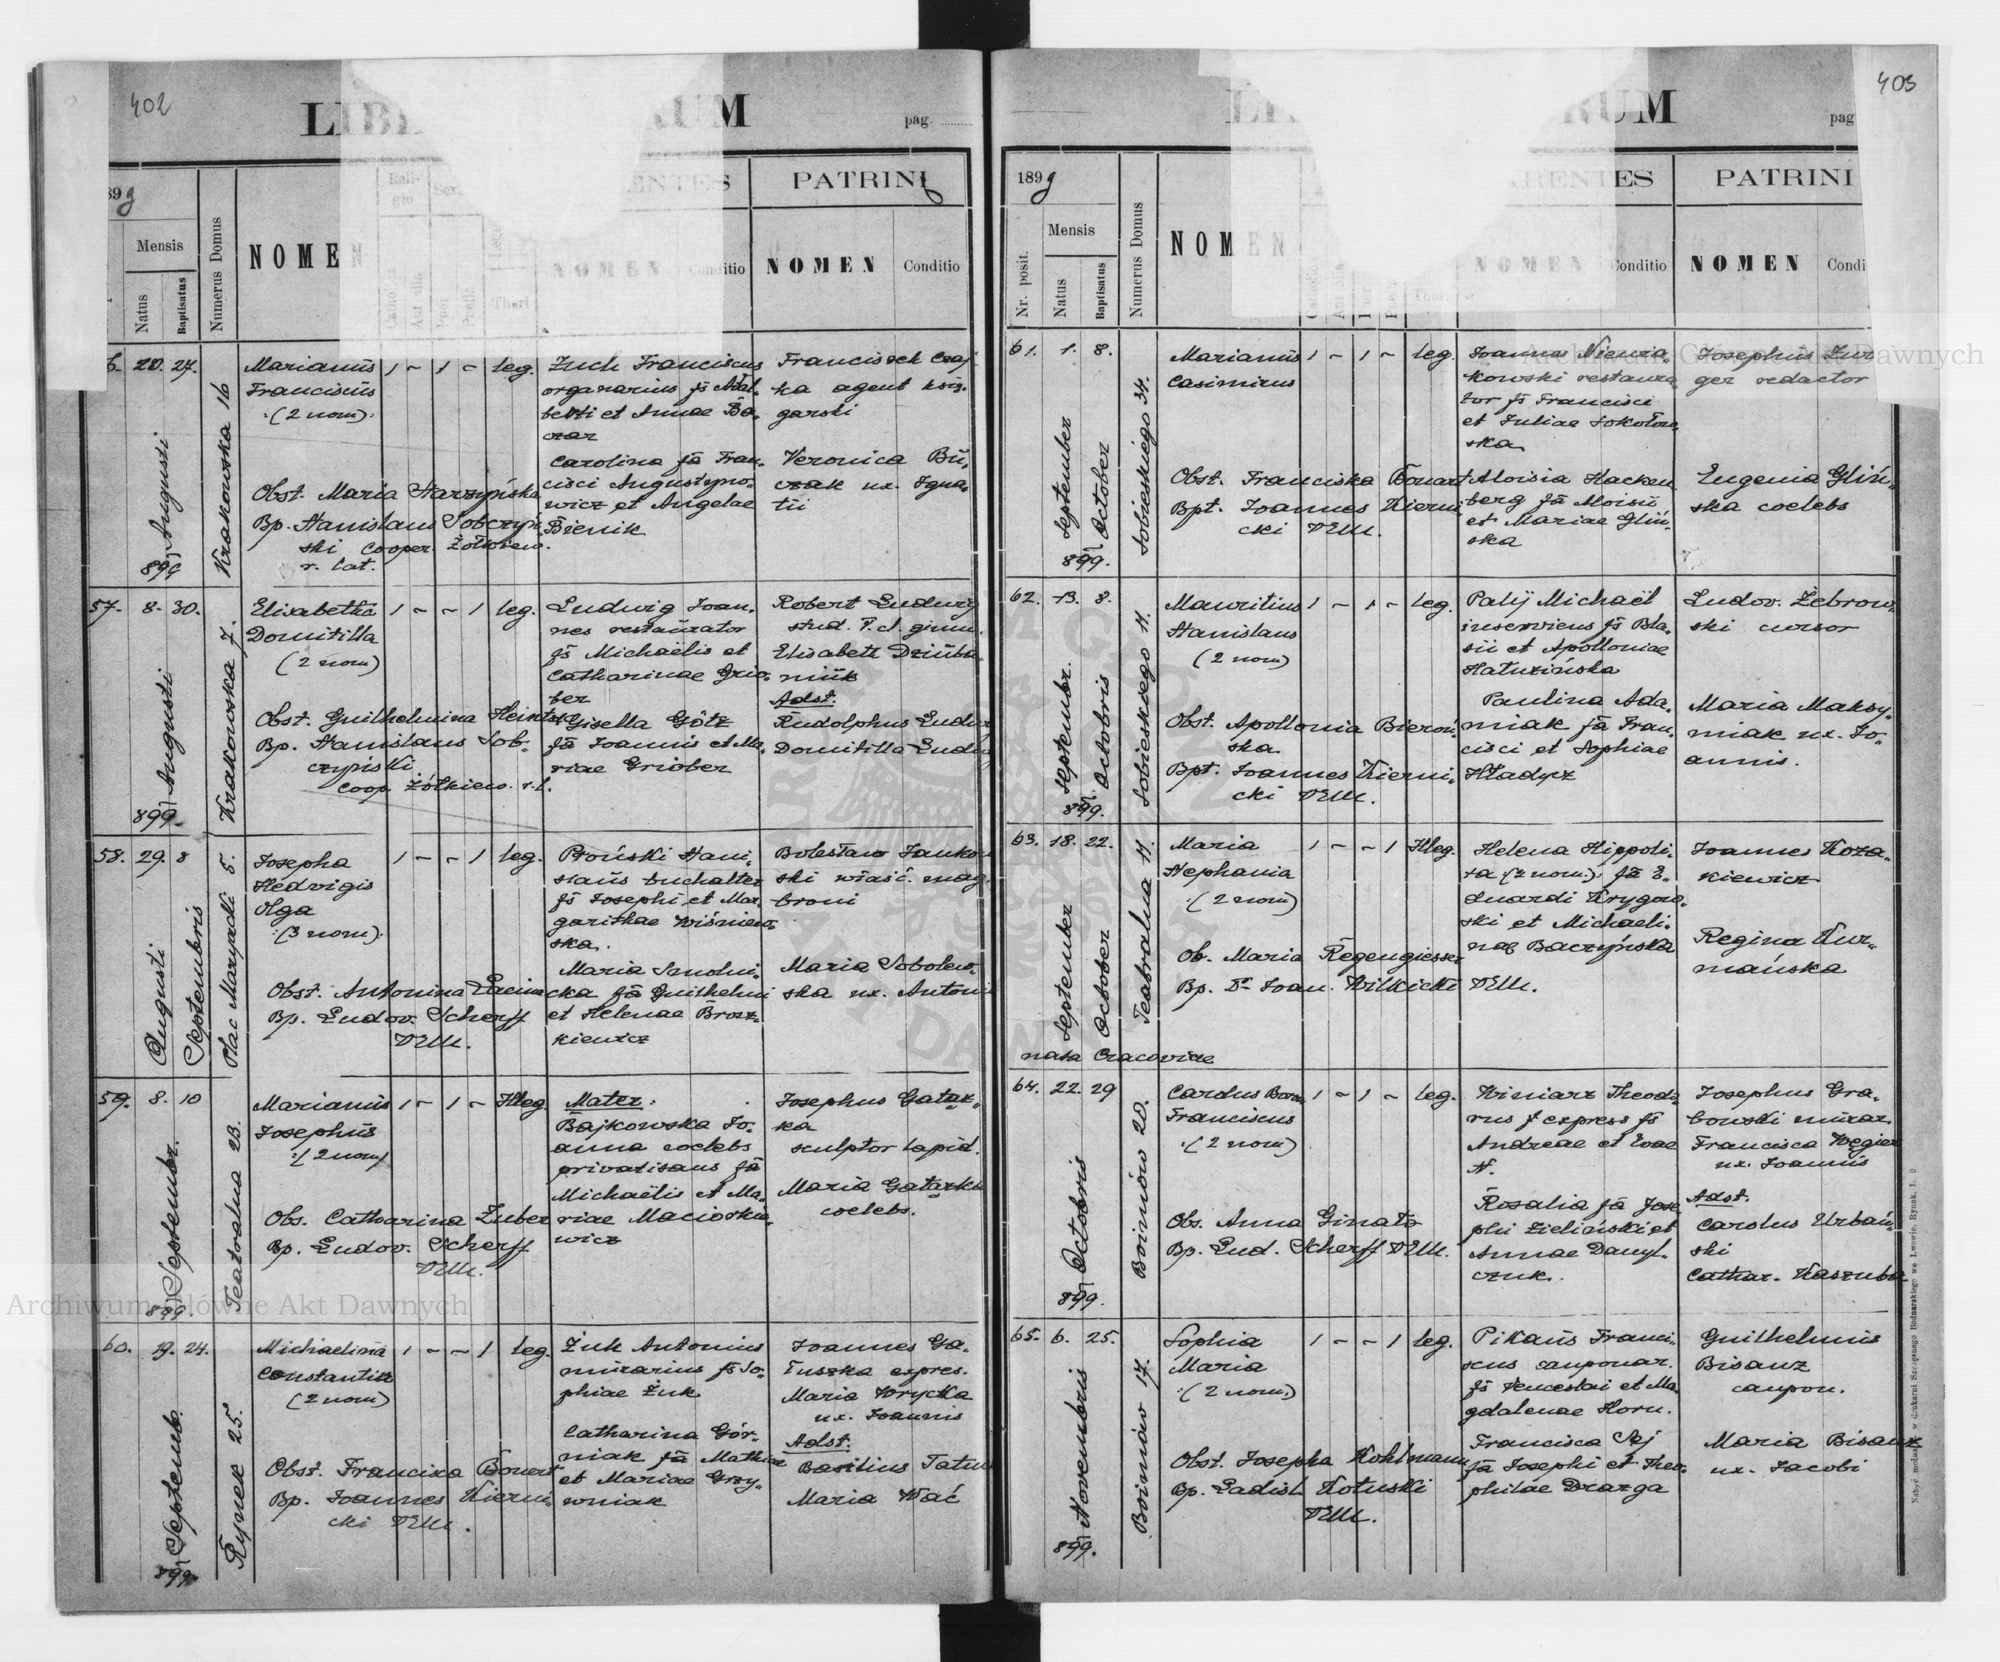 402
LIB RUM
pag.
899
Mensis
Natus
Baptisatus
Numerus Domus
NOMEN
Reli-
gio
PARENTES
NOMEN
Conditio
PATRINI
NOMEN
Conditio
6. 20. 27.
Augusti
899
Krakowska 16
Marianus
Franciscus
(2 nom).
1 - 1 - leg.
Obst. Maria Starzyńska
Bp. Stanislaus Sobczyń
ski Cooper. Żółkiew.
r. lat.
Żuch Franciscus
organarius fs Adal
berti et Annae Ba-
czar
Carolina fa Fran-
cisci Augustyno-
wicz et Angelae
Bienik
Francisek Czaj
ka agent księ
garski
Veronica Bu-
czak ux. Igna-
tii
57. 8. 30.
Augusti
899
Krakowska 7.
Elisabetha
Domitilla
(2 nom)
1 - - 1 leg.
Obst. Guilhelmina Heintsch
Bp. Stanislaus Sob-
czyński
Coop. Żółkiew. r. l.
Ludwig Joan-
nes restaurator
fs Michaëlis et
Catharinae Grio-
ber
Gisella Götz
fa Joannis et Ma-
riae Griober
Robert Ludwig
stud. gimn.
Elisabeth Dziuba-
niuk
Adst.
Rudolphus Ludwig
Domitilla Ludwig
58. 29. 8
Augusti
Septembris
Plac Maryacki 5.
Josepha
Hedvigis
Olga
(3 nom).
1 - - 1 leg.
Obst. Antonina
Bp. Ludov. Scherff
VEM.
Płoński Stani-
slaus buchalter
fs Josephi et Mar-
garithae Wiśniew-
ska.
Maria Smolni-
cka fa Guilhelmi
et Helenae Brosz-
kiewicz
Bolesław Janko
ski właść. mag.
broni
Maria Sobolew-
ska ux. Antoni
59. 8. 10
Septembr.
899.
Teatralna 23.
Marianus
Josephus
(2 nom)
1 - 1 - Illeg.
Obs. Catharina Zuber
Bp. Ludov. Scherff
VEM.
Mater.
Bajkowska Jo-
anna coelebs
privatisans fa
Michaëlis et Ma-
riae Maciorkie-
wicz
Josephus Gałąz-
ka
sculptor lapid.
Maria Gałązka
coelebs.
60. 19. 24.
Septemb.
899
Rynek 25.
Michaelina
Constantia
(2 nom)
1 - - 1 leg.
Obst. Francisca Bouart
Bp. Joannes Kierni-
cki VEM.
Żuk Antonius
murarius fs So-
phiae Żuk
Catharina Gór-
niak fa Mathiae
et Mariae Grzy-
wniak
Joannes Ga-
łuszka expres.
Maria Wrycka
ux. Joannis
Adst.
Basilius Tatu
Maria Wać
403
LI RUM
pag
1899
Nr. posit.
Mensis
Natus
Baptisatus
Numerus Domus
NOMEN
PARENTES
NOMEN
Conditio
PATRINI
NOMEN
Condi
61. 1. 8.
September
October
899.
Sobieskiego 34.
Marianus
Casimirus
1 - 1 - leg.
Obst. Franciska Bouart
Bpt. Joannes Kierni
cki VEM.
Joannes Niewia-
kowski restaura
tor fs Francisci
et Juliae Sokołow
ska
Aloisia Hacken
berg fa Aloisii
et Mariae Gliń-
ska
Josephus Zur
ger redactor
Eugenia Gliń-
ska coelebs
62. 13. 8.
Septembr.
Octobris
899.
Sobieskiego 11.
Mauritius
Stanislaus
(2 nom)
1 - 1 - leg.
Obst. Apollonia Bieroń-
ska
Bpt. Joannes Kierni-
cki VEM.
Palij Michaël
inserviens fs Bla-
sii et Apolloniae
Haturzińska
Paulina Ada-
miak fa Fran-
cisci et Sophiae
Hładycz
Ludov. Żebrow-
ski cursor
Maria Maksy-
miak ux. Jo-
annis.
63. 18. 22.
September
October
Teatralna 11.
Maria
Stephania
(2 nom)
1 - - 1 Illeg.
Ob. Maria Regengiesser
Bp. Dr Joan. Wilkicki VEM.
nata Cracoviae
Helena Hippoli-
ta (2 nom.) fa E-
duardi Krygow-
ski et Michaeli-
nae Baczyńska
Joannes Koza-
kiewicz
Regina Kur-
mańska
64. 22. 29
Octobris
899.
Boimów 20.
Carolus Borom.
Franciscus
(2 nom)
1 - 1 - leg.
Obs. Anna Ginato
Bp. Lud. Scherff VEM.
Winiarz Theodo
rus f express fs
Andreae et Evae
N.
Rosalia fa Jose-
phi Zieliński et
Annae Danyl-
czuk.
Josephus Gra-
bowski murar.
Francisca Węgier
ux. Joannis
Adst.
Carolus Urbań-
ski
Cathar. Kaszuba
65. 6. 25.
Novembris
899.
Boimów 17.
Sophia
Maria
(2 nom.)
1 - - 1 leg.
Obst. Josepha Kohlmann
Bp. Ladisl. Kotuski
VEM.
Pikaus Franci-
scus cauponar.
fs Venceslai et Ma-
gdalenae Horn.
Francisca Saj
fa Josephi et Theo-
philae Drazga
Guilhelmus
Bisanz
caupon.
Maria Bisanz
ux. Jacobi
Archiwum Główne Akt Dawnych
Archiwum Główne Akt Dawnych